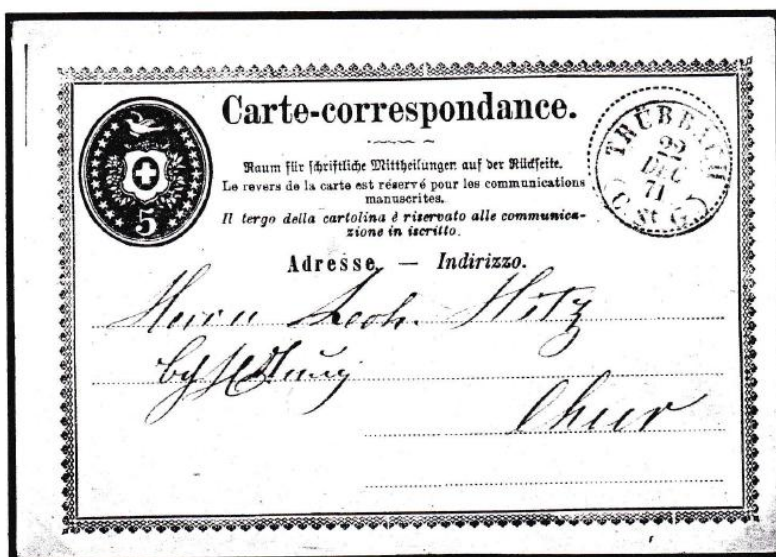 Carte-correspondance.
Raum für schriftliche Mittheilungen auf der Rückseite.
Le revers de la carte est réservé pour les communications
manuscrites.
Il tergo della cartolina è riservato alle communica-
zione in iscritto.
Adresse. — Indirizzo.
5
TRÜBBACH
22
DEC
71
(C. St. G.)
Herrn Hitz
Chur